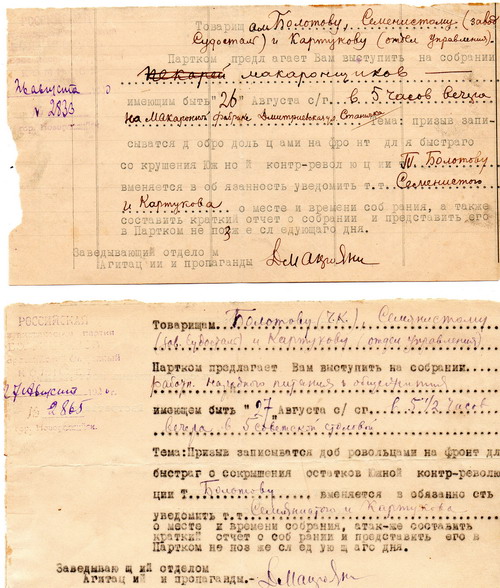 Товарищам Болотову, Семенистому (завод
Судосталь) и Картукову (отдел Управления).
Партком предлагает Вам выступить на собрании
макаронщиков
26 августа
N 2833
гор. Новороссийск
имеющим быть "26" Августа с/г. в 5 часов Вечера
на Макаронной фабрике Тема: призыв запи-
сыватся добровольцами на фронт для быстраго
сокрушения Южной контр-революции т. Болотову
вменяется в обязанность уведомить т.т. Семенистого
и Картукова о месте и времени собрания, а также
составить краткий отчет о собрании и представить его
в Партком не позже следующаго дня.
Заведывающий отделом
Агитации и пропаганды
РОССИЙСКАЯ
партии
27 Августа
N 2865
гор. Новороссийск.
Товарищам Болотову (Ч.К.), Семянистому
(зав. Судосталь) и Картукову (отдел управления)
Партком предлагает Вам выступить на собрании
питания и общежития
имеющем быть "27" Августа с/ г. в 5 1/2 часов
вечера в 5 Советской столовой
Тема: Призыв записыватся добровольцами на фронт для
быстраг о сокрышения остатков Южной контр-револю
ции т. Болотову вменяется в обязанность
уведомить т.т. Семянистого и Картукова
о месте и времени собрания, атак-же составить
краткий отчет о собрании и представить его в
Партком не позже следующаго дня.
Заведывающий отделом
Агитаций и пропаганды.-